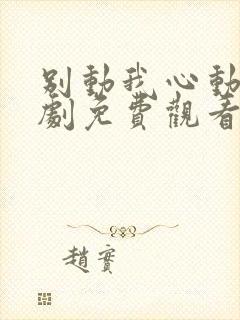 别動我心動
劇免費觀看
趙實